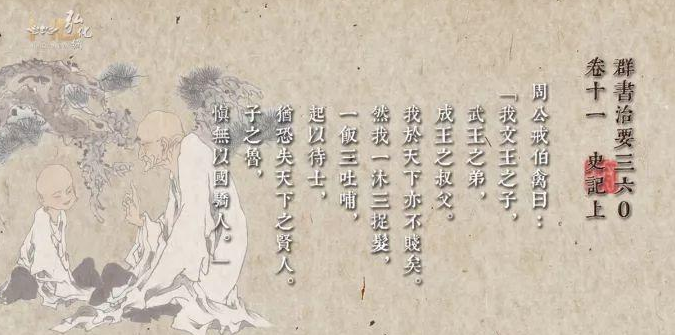 群書治要三六０
卷十一　史記上
周公戒伯禽曰：
「我文王之子，
武王之弟，
成王之叔父。
我於天下亦不賤矣。
然我一沐三捉髮，
一飯三吐哺，
起以待士，
猶恐失天下之賢人。
子之魯，
慎無以國驕人。」
弘化